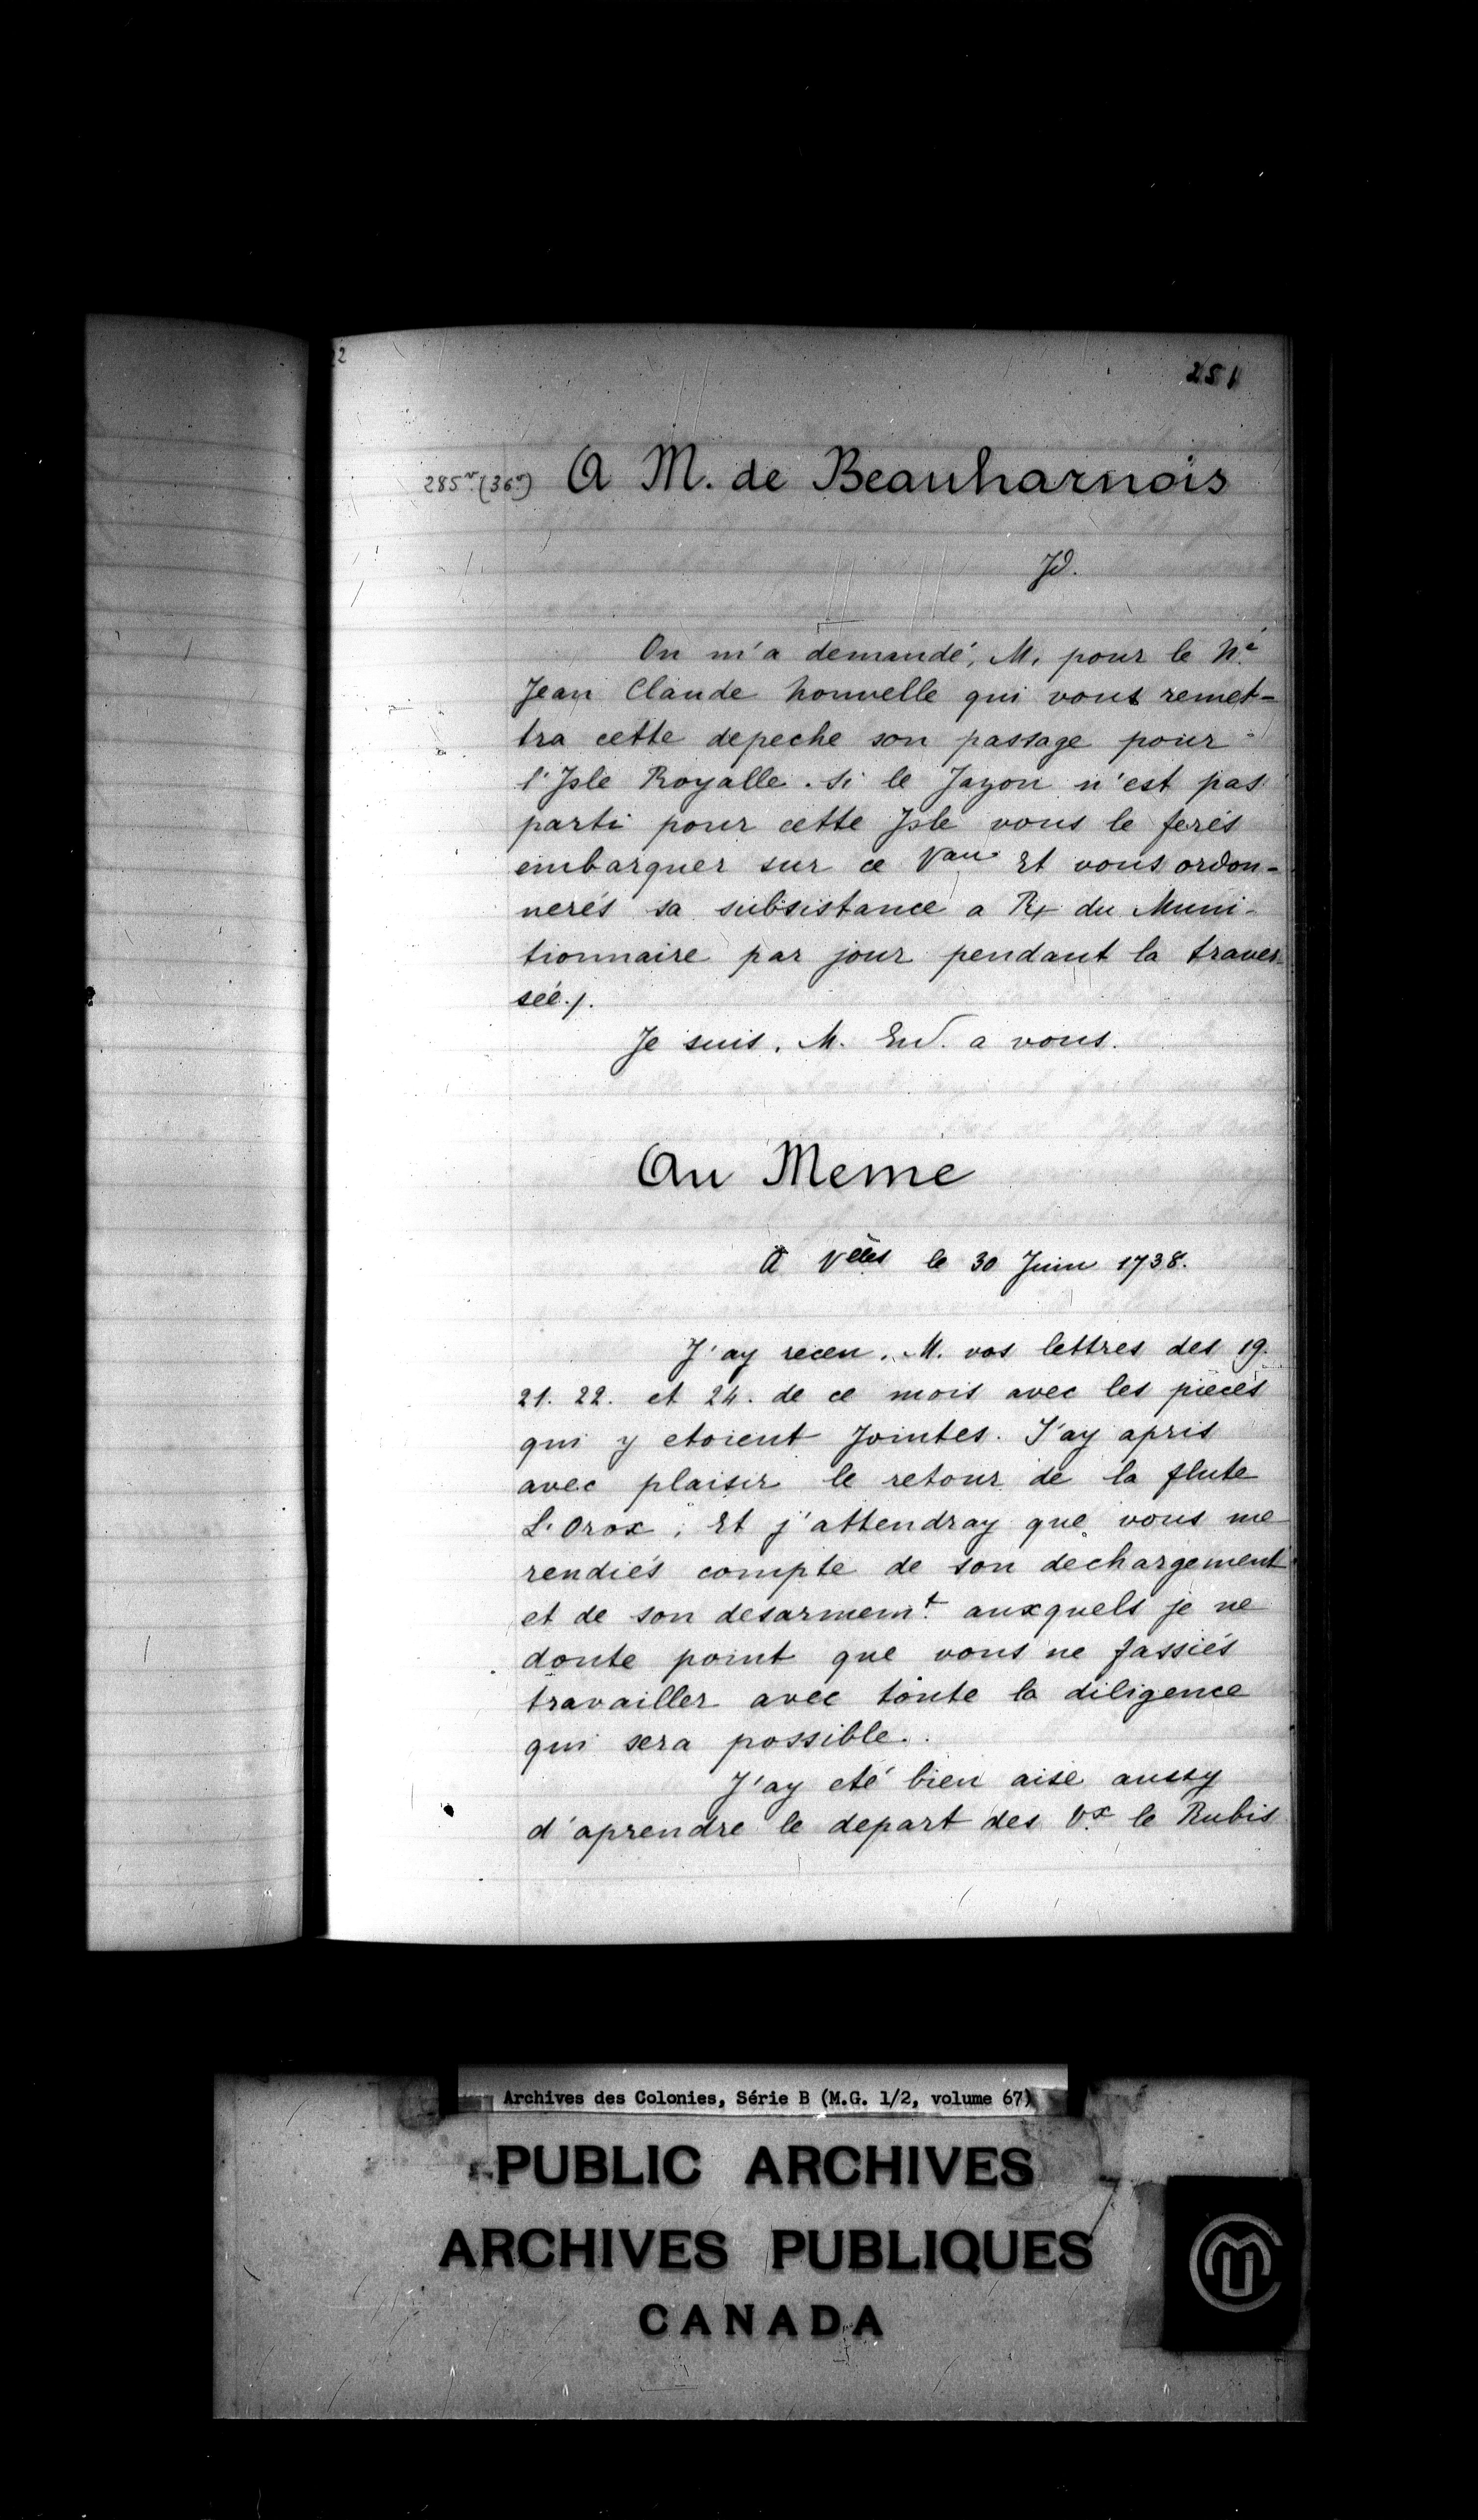 251
285v. (36v) A M. de Beauharnois
Jd.
On m'a demandé, M. pour le Né
Jean Claude Nouvelle qui vous remet-
tra cette depeche son passage pour
l'Isle Royalle. Si le Jazon n'est pas
parti pour cette Isle vous le ferés
embarquer sur ce Vau Et vous ordon-
nerés sa subsistance a du Muni-
tionnaire par jour pendant la traver-
sée./.
Je suis, M. End. a vous.
Au Meme
A Vlles le 30 Juin 1738.
J'ay receu, M. vos lettres des 19.
21. 22. et 24. de ce mois avec les pieces
qui y etoient Jointes. J'ay apris
avec plaisir le retour de la flute
L'Orox, Et j'attendray que vous me
rendiés compte de son dechargement
et de son desarmemt. auxquels je ne
doute point que vous ne fassiés
travailler avec toute la diligence
qui sera possible.
J'ay eté bien aise aussy
d'aprendre le depart des Vx le Rubis
Archives des Colonies, Série B (M.G. 1/2, volume 67)
PUBLIC ARCHIVES
ARCHIVES PUBLIQUES
CANADA